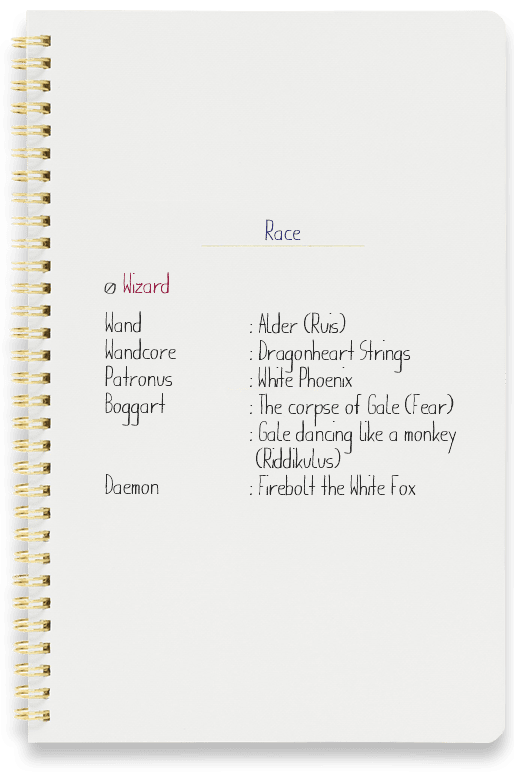 Race
∅ Wizard
Wand : Alder (Ruis)
Wandcore : Dragonheart Strings
Patronus : White Phoenix
Boggart : The corpse of Gale (Fear)
: Gale dancing like a monkey
(Riddikulus)
Daemon : Firebolt the White Fox